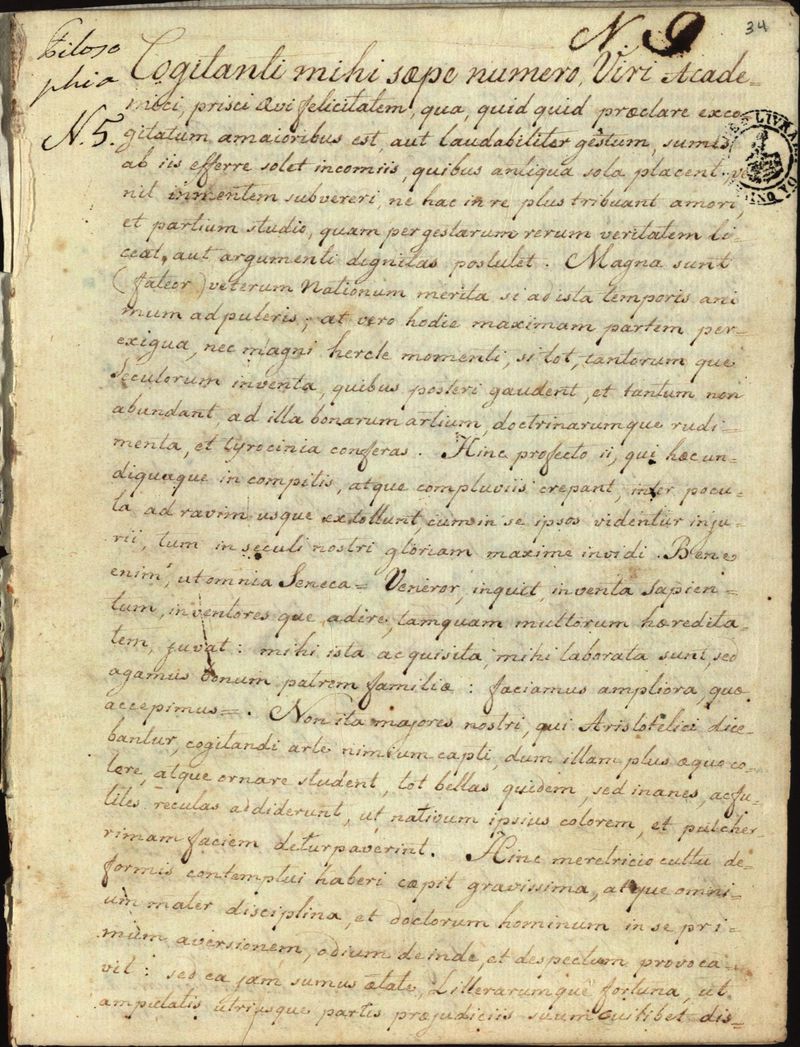 34
N. 9
Filoso
phia
N. 5.
Cogitanti mihi sæpe numero, Viri Acade-
mici, prisci ævi felicitatem, qua, quid quid præclare exco-
gitatum amaioribus est, aut laudabiliter gestum, sumis
ab iis efferre solet incomiis, quibus antiqua sola placent, ve
nit inmentem subvereri, ne hac in re plus tribuant amori,
et partium studio, quam per gestarum rerum veritatem li-
ceat, aut argumenti dignitas postulet. Magna sunt
(fateor) veterum Nationum merita si ad ista temporis ani
mum adpuleris; at vero hodie maximam partem per-
exigua, nec magni hercle momenti, si tot, tantorum que
Seculorum inventa, quibus posteri gaudent, et tantum non
abundant, ad illa bonarum artium, doctrinarumque rudi-
menta, et tyrocinia conferas. Hinc profecto ii, qui hæc un-
diquaque in compitis, atque compluviis crepant, inter pocu-
la, ad ravim usque extollunt, cum in se ipsos videntur inju-
rii, tum in seculi nostri gloriam maxime invidi. Bene
enim, ut omnia Seneca = Veneror, inquit, inventa sapien-
tum, inventores que, adire, tamquam multorum hæredita-
tem, juvat: mihi ista acquisita, mihi laborata sunt, sed
agamus bonum patrem familiæ: faciamus ampliora, quæ
accepimus =. Non ita majores nostri, qui Aristotelici dice-
bantur, cogitandi arte nimium capti, dum illam plus æquo co-
lere, atque ornare student, tot bellas quidem, sed inanes, ac fu-
tiles reculas addiderunt, ut nativum ipsius colorem, et pulcher-
rimam faciem deturpaverint. Hinc meretricio cultu de-
formis contemptui haberi cæpit gravissima, atque omni-
um mater disciplina, et doctorum hominum in se pri-
mum aversionem, odium deinde, et despectum provoca-
vit: sed ea jam sumus ætate, Litterarumque fortuna, ut
amputatis utriusque partis præjudiciis suum cuilibet dis-